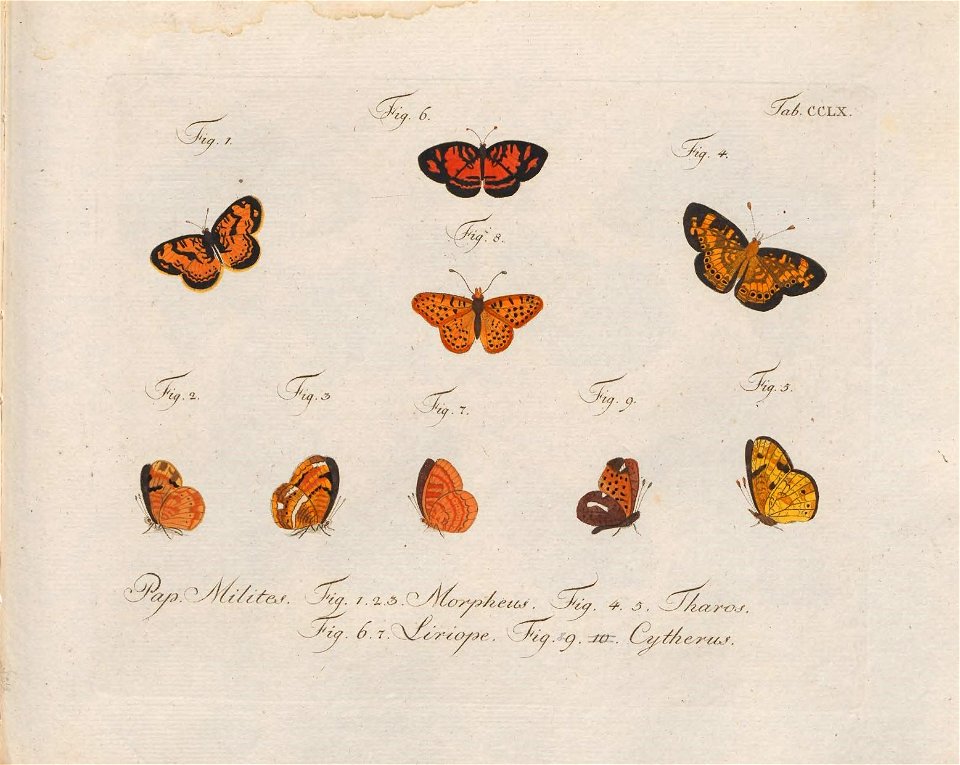 Tab. CCLX.
Fig. 6.
Fig. 1.
Fig. 4.
Fig. 8.
Fig. 5.
Fig. 2.
Fig. 3
Fig. 7.
Fig. 9.
Pap. Milites. Fig. 1. 2. 3. Morpheus. Fig. 4. 5. Tharos.
Fig. 6. 7. Liriope. Fig. 9. 10. Cytherus.